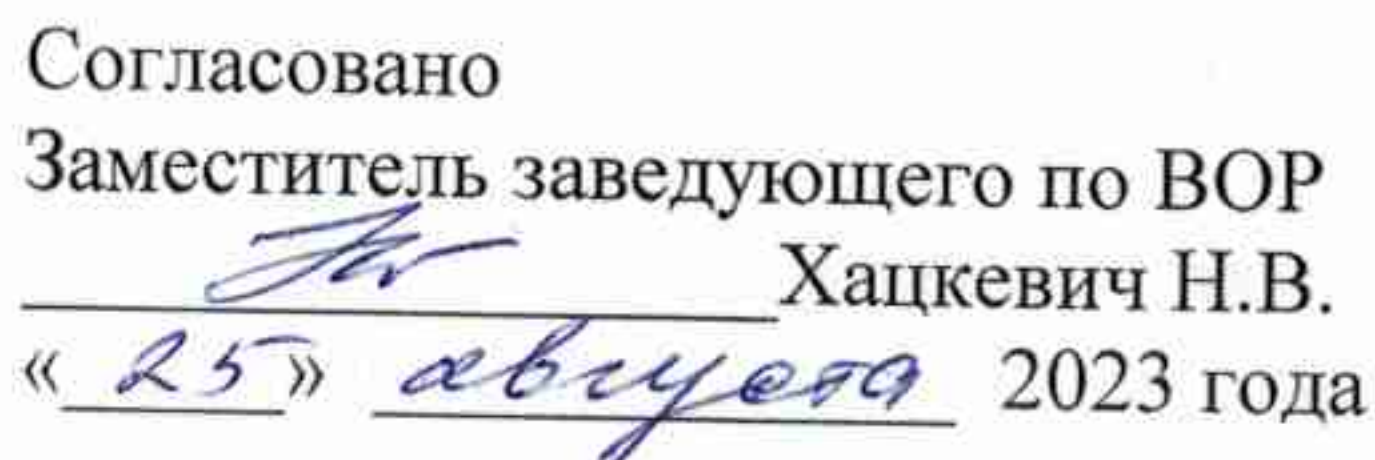 Согласовано
Заместитель заведующего по ВОР
Хацкевич Н.В.
« 25 » августа 2023 года